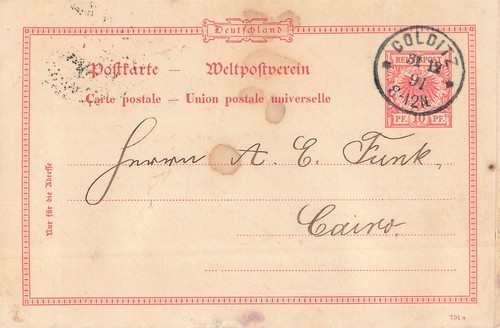 Deutschland
Postkarte – Weltpostverein
Carte postale – Union postale universelle
COLDITZ
91
8-12N.
REICHSPOST
PF. 10 PF.
Nur für die Adresse
Herrn A. E. Funk,
Cairo.
791 a